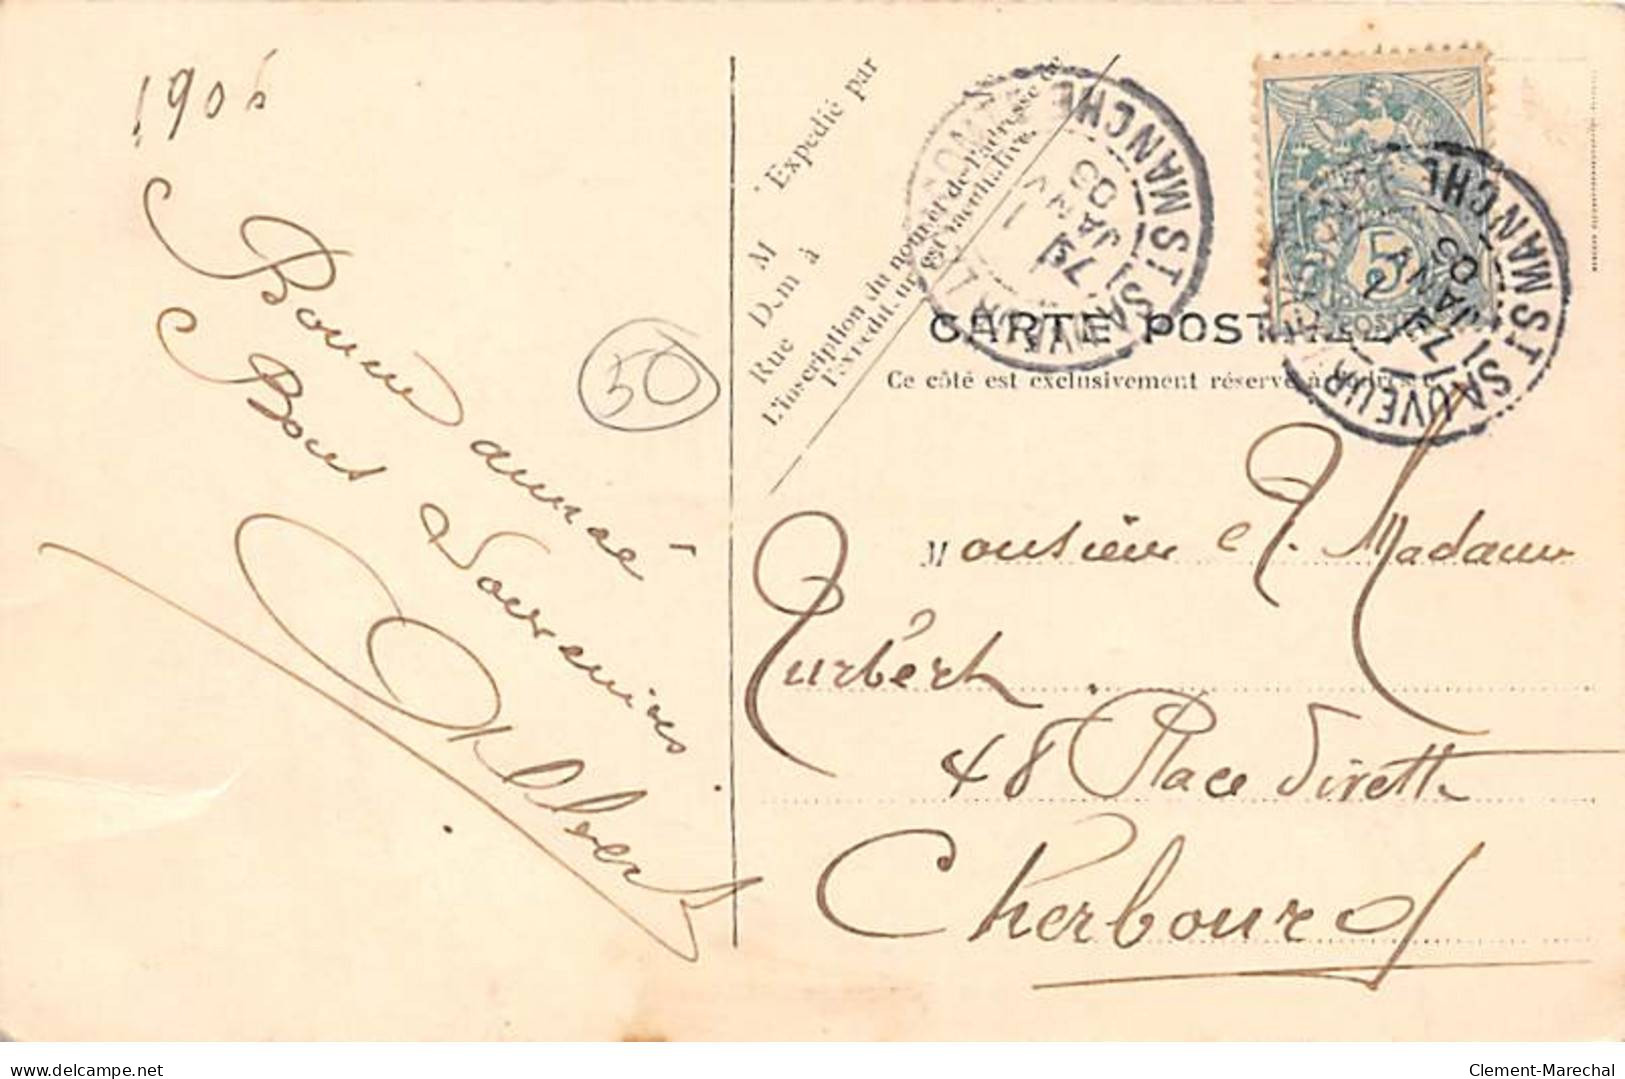 1906
Bonne année
Bons Souvenirs
Albert
50
Expedié par
M
Dem à
Rue
L'inscription du nom et de l'adresse de
l'expéditeur est facultative.
ST SAUVEUR MANCHE
JANV
ST SAUVEUR MANCHE
JANV
5
CARTE POSTALE
Ce côté est exclusivement réservé à l'adresse
Monsieur et Madame
Hurbert
48 Place Divette
Cherbourg
delcampe.net
Clement-Marechal